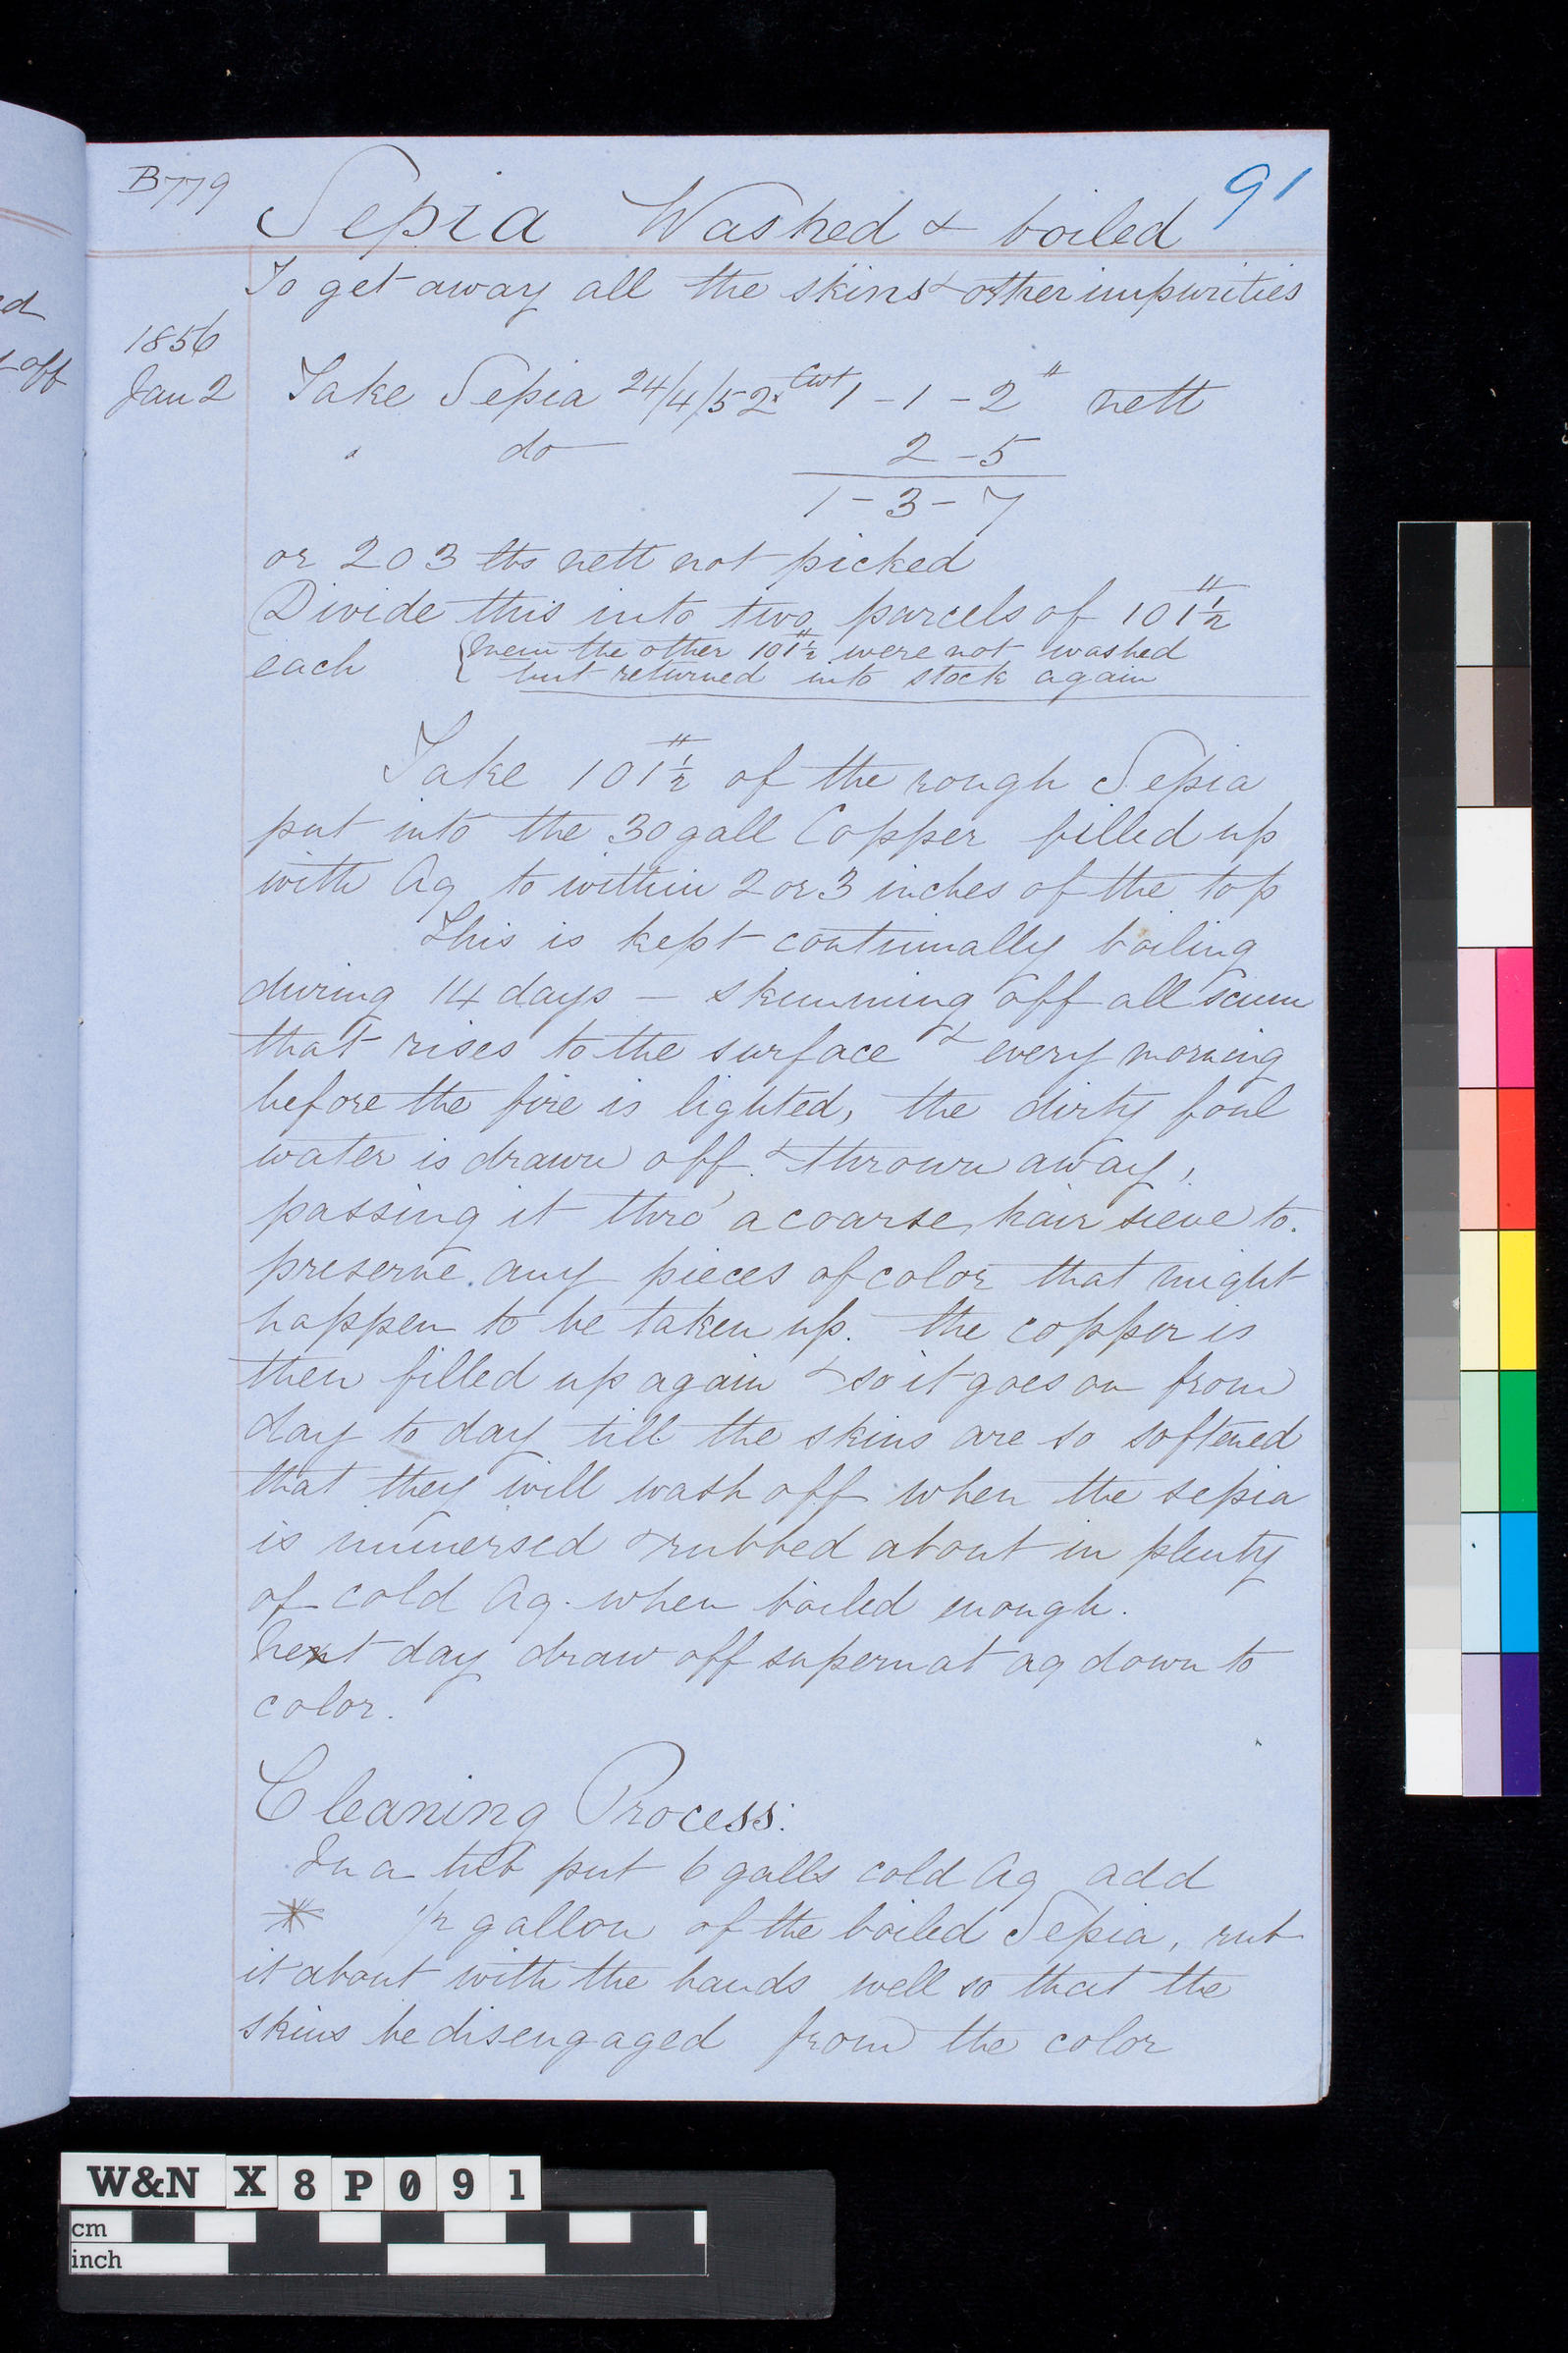 B779
91
Sepia Washed & boiled
To get away all the skins & other impurities
1856
Jan 2
Take Sepia 24/4/52. Cwt 1 - 1 - 2 # nett
" do 2 - 5
1 - 3 - 7
or 203 lbs nett not picked
Divide this into two parcels of 101½ #
each {Mem the other 101½ # were not washed
but returned into stock again
Take 101½ # of the rough Sepia
put into the 30 gall Copper filled up
with Aq to within 2 or 3 inches of the top
This is kept continually boiling
during 14 days — skimming off all scum
that rises to the surface & every morning
before the fire is lighted, the dirty foul
water is drawn off & thrown away,
passing it thro' a coarse hair sieve to
preserve any pieces of color that might
happen to be taken up. the copper is
then filled up again & so it goes on from
day to day till the skins are so softened
that they will wash off when the sepia
is immersed & rubbed about in plenty
of cold Aq. when boiled enough.
Next day draw off supernat aq down to
color.
Cleaning Process:
In a tub put 6 galls cold Aq add
* 1/2 gallon of the boiled Sepia, rub
it about with the hands well so that the
skins be disengaged from the color
ed
off
W&N X 8 P 0 9 1
cm
inch